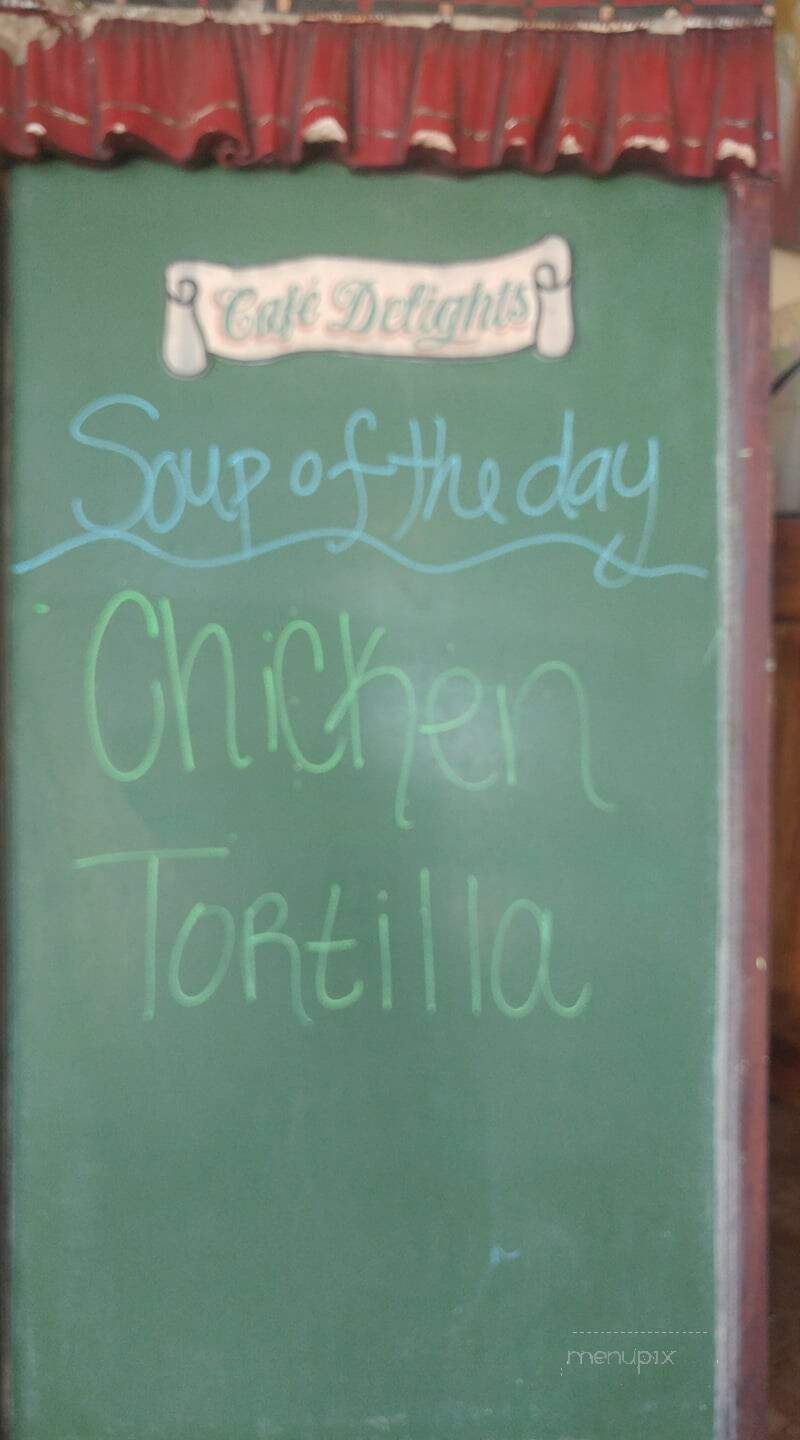 Café Delights
Soup of the day
Chicken
Tortilla
menupix